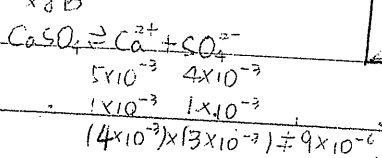 CaSO₄ ⇌ Ca²⁺ + SO₄²⁻
5×10⁻³ 4×10⁻³
1×10⁻³ 1×10⁻³
(4×10⁻³)×(3×10⁻³) ≠ 9×10⁻⁶